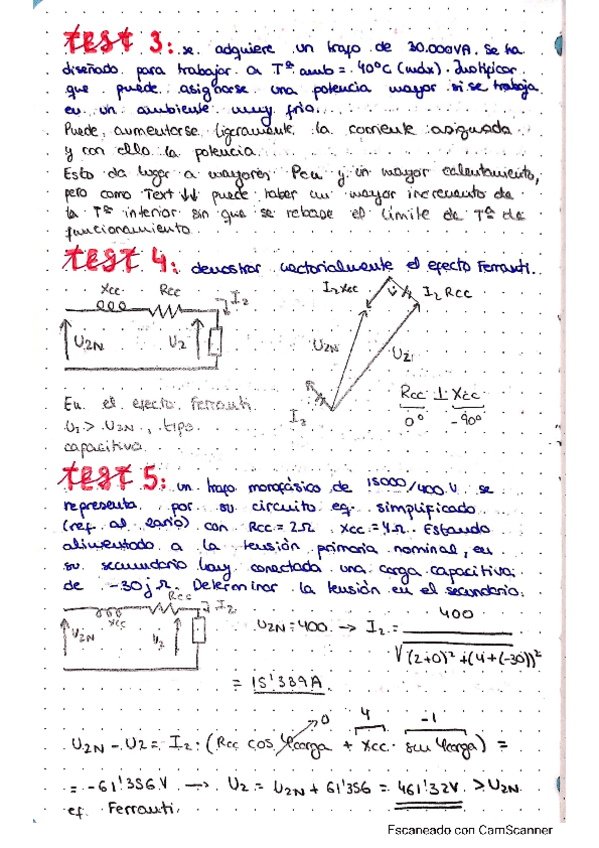 TEST 3: se adquiere un trafo de 30.000VA. Se ha
diseñado para trabajar a Tª amb = 40°C (máx). Justificar
que puede asignarse una potencia mayor si se trabaja
en un ambiente muy frío.
Puede aumentarse ligeramente la corriente asignada
y con ello la potencia.
Esto da lugar a mayores Pcu y un mayor calentamiento,
pero como Text ↓↓ puede haber un mayor incremento de
la Tª interior sin que se rebase el límite de Tª de
funcionamiento
TEST 4: demostrar vectorialmente el efecto Ferranti.
Xcc Rcc I2
U2N U2
I2Xcc I2Rcc
U2N U2
I2
Rcc ⊥ Xcc
0° -90°
En el efecto Ferranti
U2 > U2N, tipo
capacitiva
TEST 5: un trafo monofásico de 15000/400 V se
representa por su circuito eq. simplificado
(ref. al 2ario) con Rcc = 2Ω Xcc = 4Ω. Estando
alimentado a la tensión primaria nominal, en
su secundario hay conectada una carga capacitiva
de -30j Ω. Determinar la tensión en el secundario.
Xcc Rcc I2
U2N U2
U2N = 400 → I2 = 400
√(2+0)² + (4+(-30))²
= 15'339A
0 4 -1
U2N - U2 = I2 · (Rcc cos φcarga + Xcc · sen φcarga) =
= -61'356 V → U2 = U2N + 61'356 = 461'32V > U2N
ef. Ferranti.
Escaneado con CamScanner